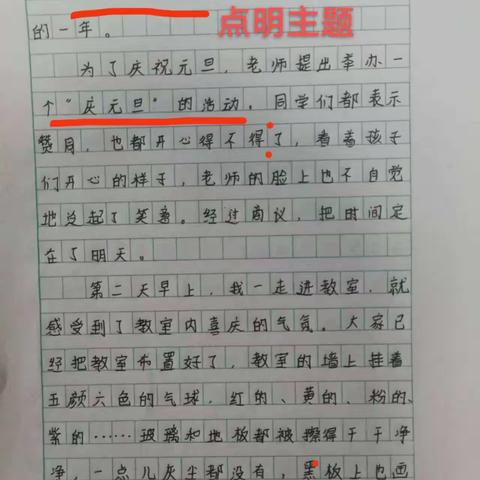 的一年。
点明主题
为了庆祝元旦，老师提出举办一
个“庆元旦”的活动，同学们都表示
赞同，也都开心得不得了，看着孩子
们开心的样子，老师的脸上也不自觉
地泛起了笑意。经过商议，把时间定
在了明天。
第二天早上，我一走进教室，就
感受到了教室内喜庆的气氛。大家已
经把教室布置好了，教室的墙上挂着
五颜六色的气球，红的、黄的、粉的、
紫的……玻璃和地板都被擦得干干净
净，一点儿灰尘都没有，黑板上也画